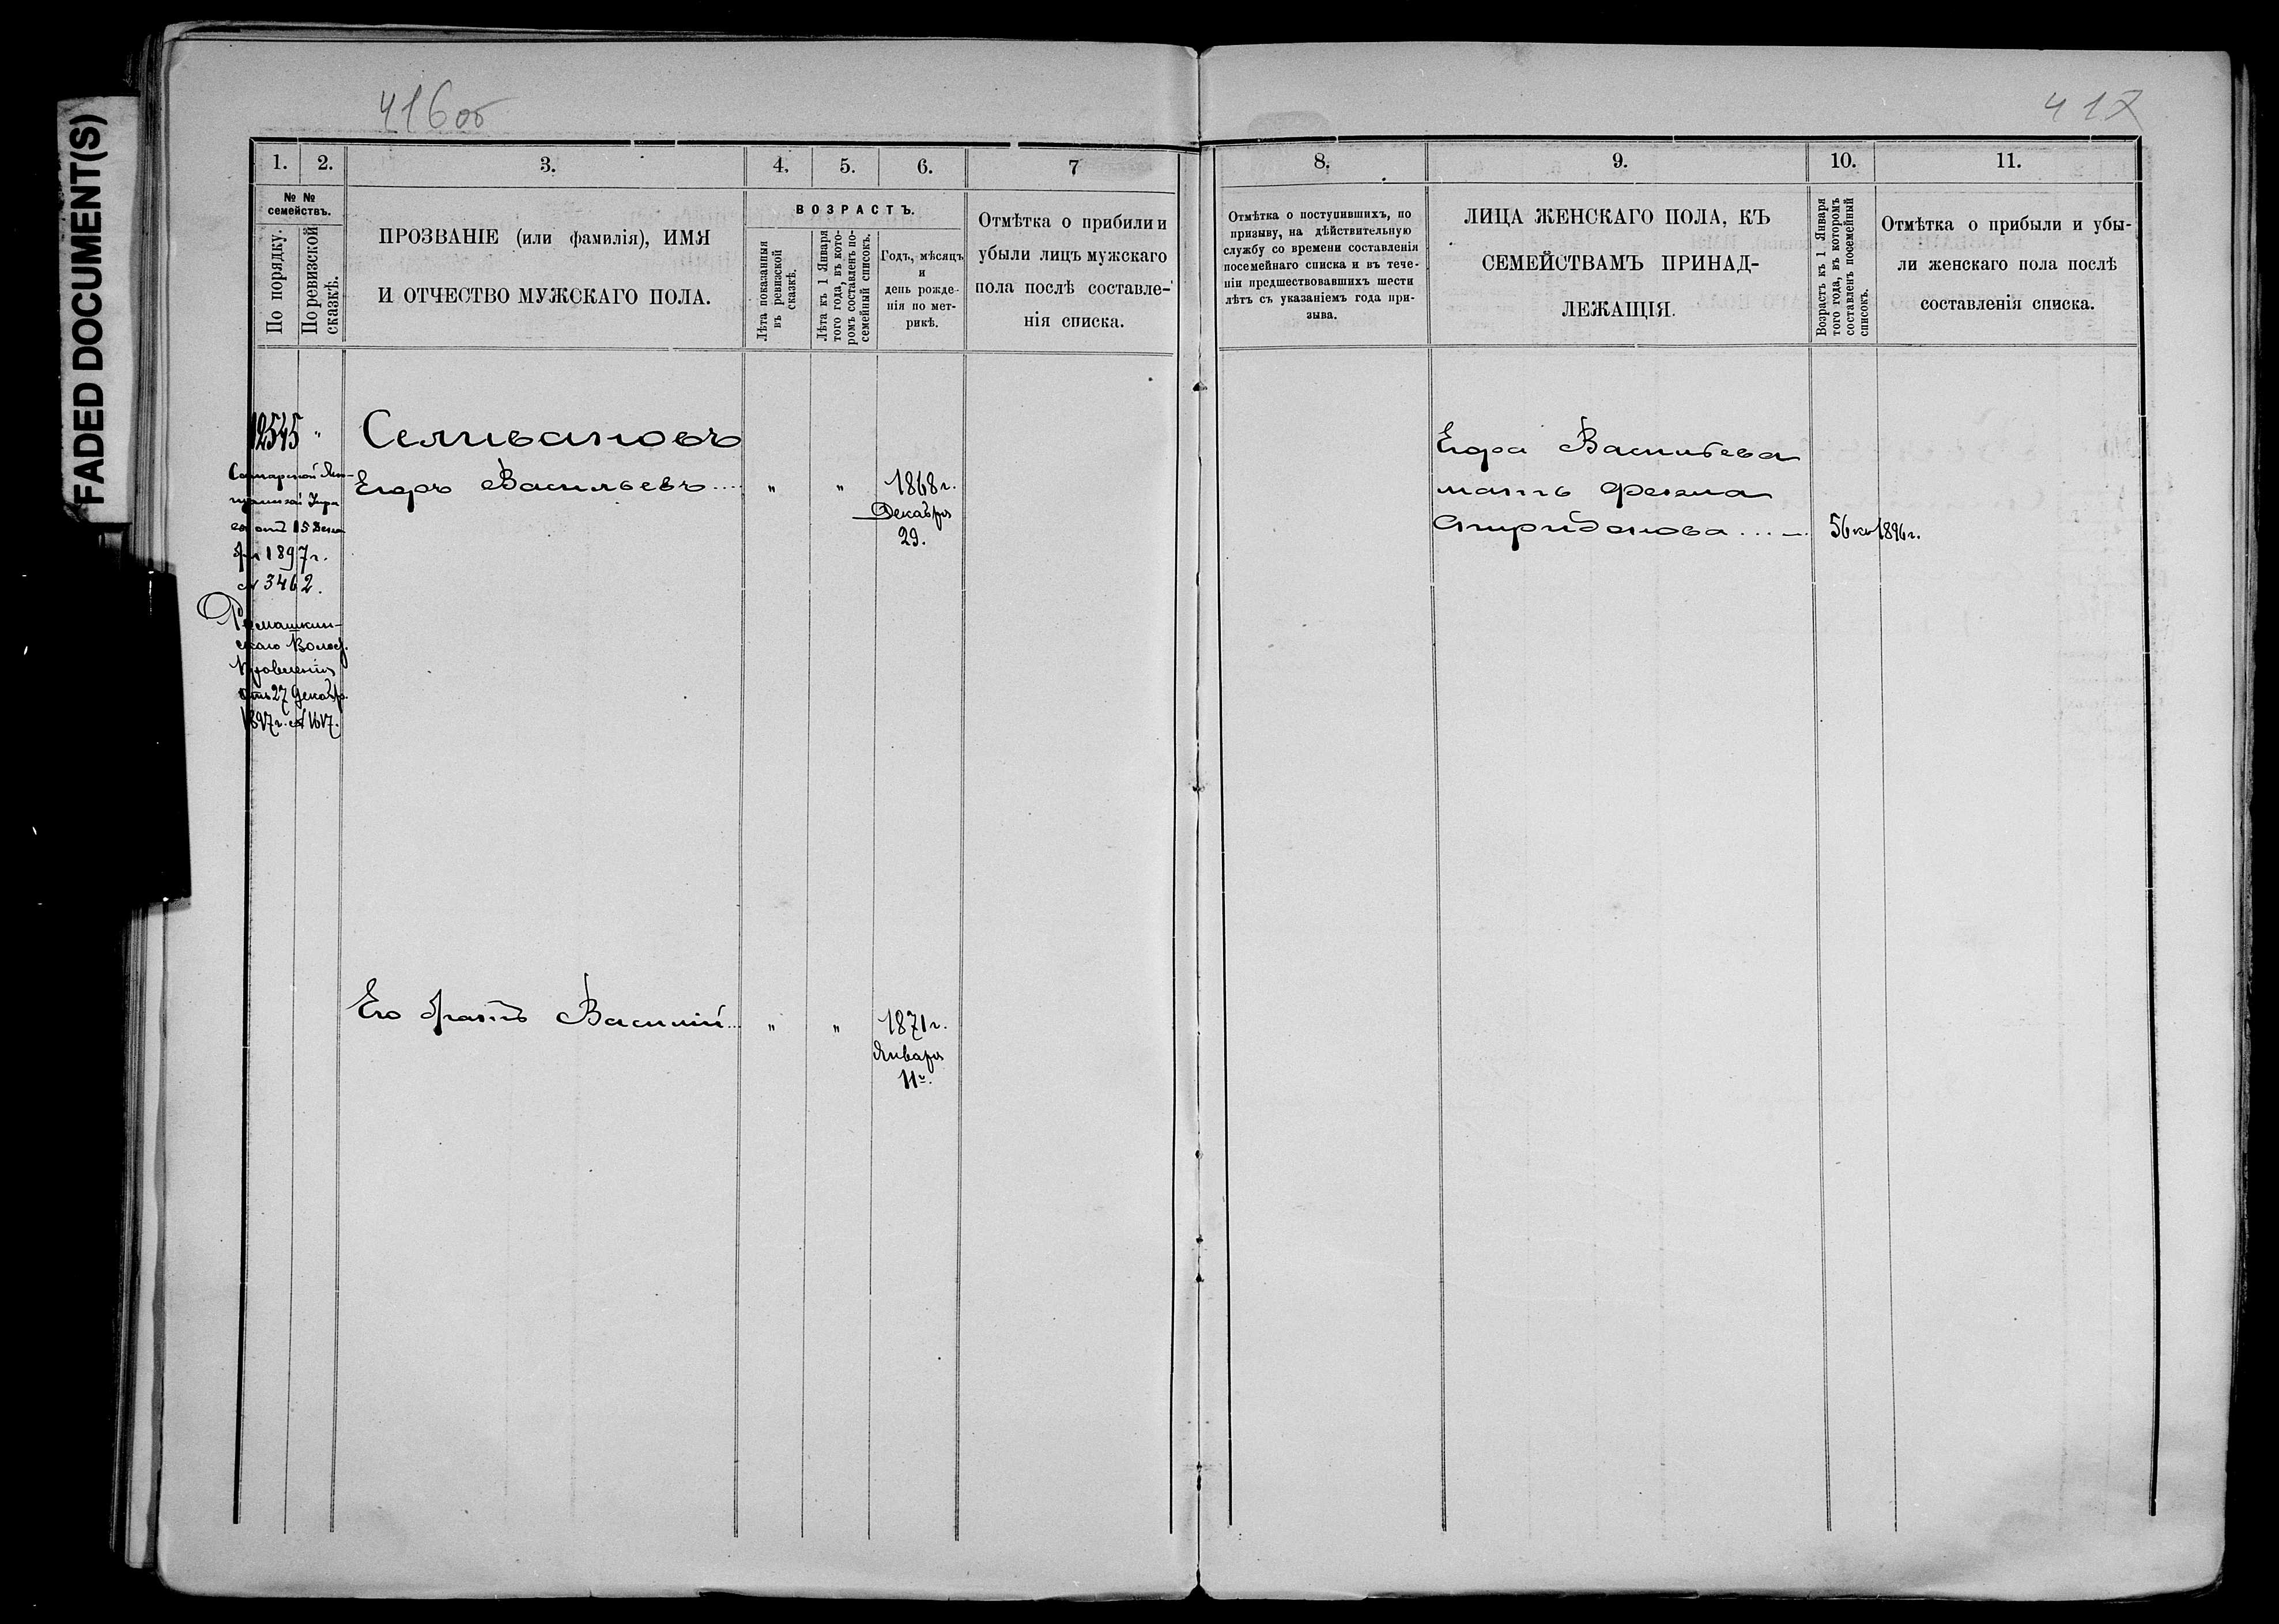 FADED DOCUMENT(S)
416об
417
1. 2. 3. 4. 5. 6. 7
№ № семействъ.
По порядку.
По ревизской сказкѣ.
ПРОЗВАНІЕ (или фамилія), ИМЯ
И ОТЧЕСТВО МУЖСКАГО ПОЛА.
ВОЗРАСТЪ.
Лѣта показанныя
въ ревизской
сказкѣ.
Лѣта къ 1 Января
того года, въ кото-
ромъ составленъ по-
семейный списокъ.
Годъ, мѣсяцъ
и
день рожде-
нія по мет-
рикѣ.
Отмѣтка о прибили и
убыли лицъ мужскаго
пола послѣ составле-
нія списка.
8. 9. 10. 11.
Отмѣтка о поступившихъ, по
призыву, на дѣйствительную
службу со времени составленія
посемейнаго списка и въ тече-
ніи предшествовавшихъ шести
лѣтъ съ указаніемъ года при-
зыва.
ЛИЦА ЖЕНСКАГО ПОЛА, КЪ
СЕМЕЙСТВАМЪ ПРИНАД-
ЛЕЖАЩІЯ.
Возрастъ къ 1 Января
того года, въ которомъ
составленъ посемейный
списокъ.
Отмѣтка о прибыли и убы-
ли женскаго пола послѣ
составленія списка.
12545 "
Селивановъ
Самарской
отъ 15 Декаб
1897 г.
№ 3462.
Ромашкин-
скаго Волост.
Правленія
отъ 27 Декабр.
1897 г. № 1617.
Егоръ Васильевъ.... " " 1868 г.
Декабря
29.
Его братъ Василій... " " 1871 г.
Января
11го.
Егора Васильева
мать Фекла
Спиридонова..... 56 къ 1896 г.